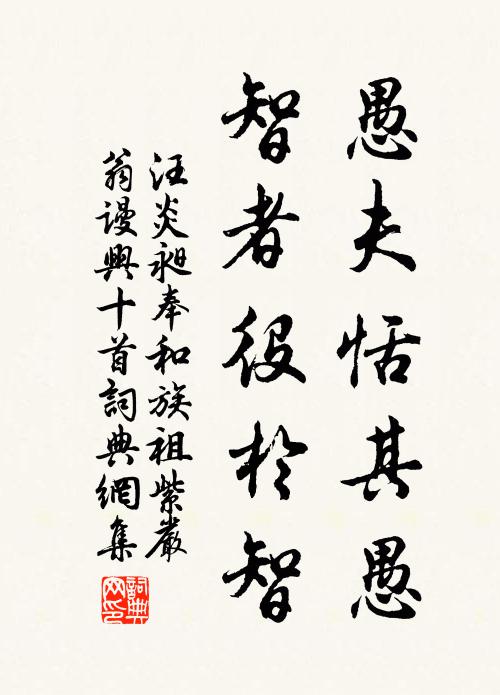 愚夫恬其愚
智者役於智
汪炎昶奉和族祖紫巖
翁謾興十首詞典網集
詞典網印